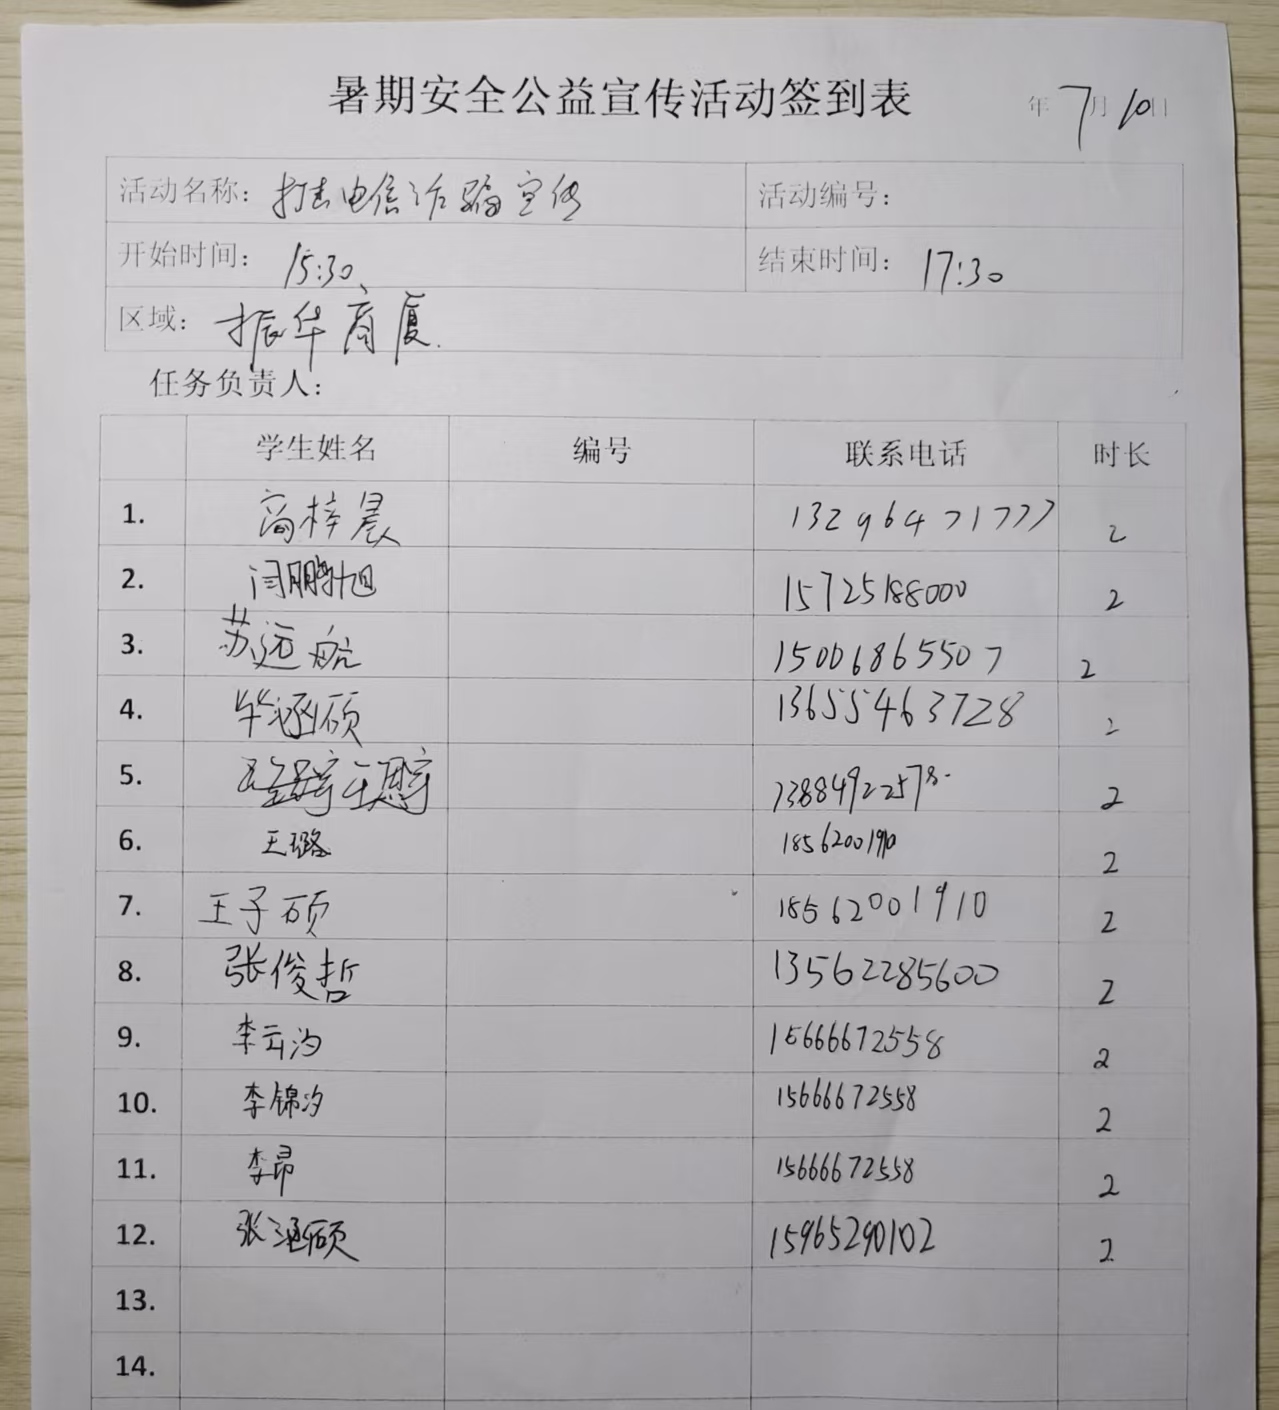 暑期安全公益宣传活动签到表
年 7月 10日
活动名称：打击电信诈骗宣传 活动编号：
开始时间：15:30 结束时间：17:30
区域：振华商厦.
任务负责人：
学生姓名 编号 联系电话 时长
1. 高梓晨 13296471777 2
2. 闫鹏旭 15725188000 2
3. 苏远航 15006865507 2
4. 毕涵硕 13655463728 2
5. 13884922578 2
6. 王璐 1856200190 2
7. 王子硕 18562001910 2
8. 张俊哲 13562285600 2
9. 李云汐 15666672558 2
10. 李锦汐 15666672558 2
11. 李昂 15666672558 2
12. 张涵硕 15965290102 2
13.
14.